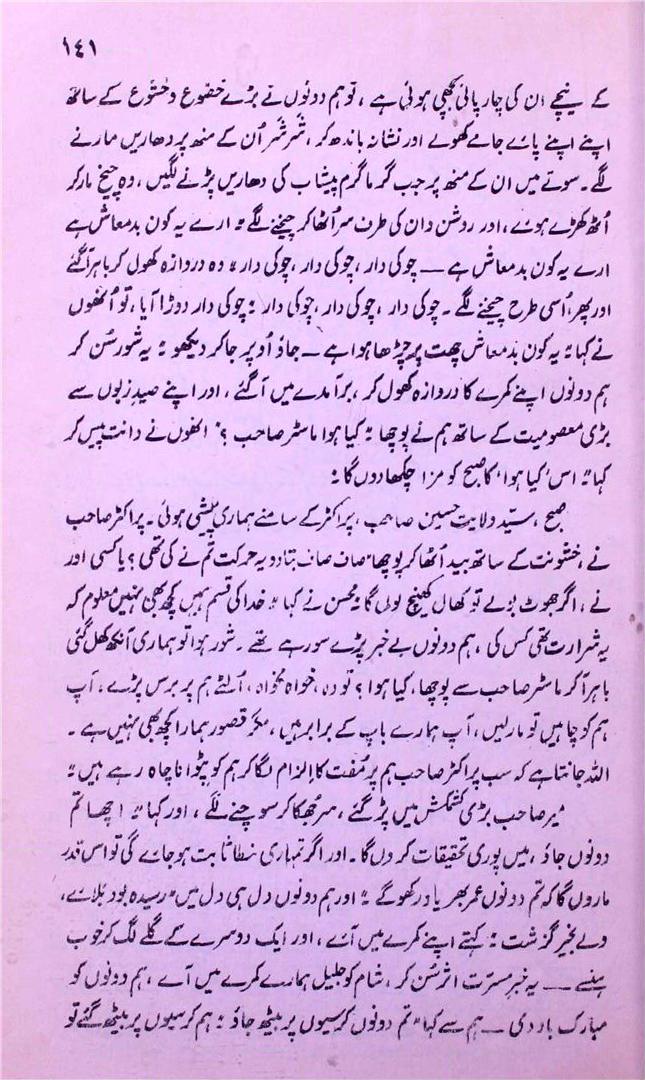 ۱۴۱
کے نیچے ان کی چارپائی بچھی ہوئی ہے ، تو ہم دونوں نے بڑے خضوع و خشوع کے ساتھ
اپنے اپنے پاے جامے کھولے اور نشانہ باندھ کر ، شُرشُر اُن کے منھ پر دھاریں مارنے
لگے۔ سوتے میں ان کے منھ پر جب گرما گرم پیشاب کی دھاریں پڑنے لگیں ، وہ چیخ مار کر
اُٹھ کھڑے ہوے ، اور روشن دان کی طرف سر اُٹھا کر چیخنے لگے " ارے یہ کون بدمعاش ہے
ارے یہ کون بدمعاش ہے — چوکی دار ، چوکی دار ، چوکی دار " وہ دروازہ کھول کر باہر آگئے
اور پھر ، اُسی طرح چیخنے لگے۔ چوکی دار ، چوکی دار ، چوکی دار " چوکی دار دوڑا آیا ، تو اُنھوں
نے کہا " یہ کون بدمعاش چھت پر چڑھا ہوا ہے — جاؤ اُوپر جا کر دیکھو " یہ شور سُن کر
ہم دونوں اپنے کمرے کا دروازہ کھول کر ، برآمدے میں آگئے ، اور اپنے صید زبوں سے
بڑی معصومیت کے ساتھ ہم نے پوچھا " کیا ہوا ماسٹر صاحب ؟" انھوں نے دانت پیس کر
کہا " اس 'کیا ہوا' کا صبح کو مزا چکھا دوں گا "
صبح ، سیّد ولایت حسین صاحب ، پراکٹر کے سامنے ہماری پیشی ہوئی۔ پراکٹر صاحب
نے ، خشونت کے ساتھ بید اُٹھا کر پوچھا " صاف صاف بتا دو یہ حرکت تم نے کی تھی ؟ یا کسی اور
نے ، اگر جھوٹ بولے تو کھال کھینچ لوں گا " محسن نے کہا " خدا کی قسم ہمیں کچھ بھی نہیں معلوم کہ
یہ شرارت تھی کس کی ، ہم دونوں بے خبر پڑے سو رہے تھے۔ شور ہوا تو ہماری آنکھ کھل گئی
باہر آکر ماسٹر صاحب سے پوچھا ، کیا ہوا ؟ تو وہ ، خواہ مخواہ ، اُلٹے ہم پر برس پڑے ، آپ
ہم کو چاہیں تو مارلیں ، آپ ہمارے باپ کے برابر ہیں ، مگر قصور ہمارا کچھ بھی نہیں ہے۔
اللہ جانتا ہے کہ سب پراکٹر صاحب ہم پر مُفت کا اِلزام لگا کر ہم کو پٹوانا چاہ رہے ہیں "
میر صاحب بڑی کشمکش میں پڑ گئے ، سر جُھکا کر سوچنے لگے ، اور کہا " اچھا تم
دونوں جاؤ ، میں پوری تحقیقات کر دں گا۔ اور اگر تمہاری خطا ثابت ہوجاے گی تو اس قدر
ماروں گا کہ تم دونوں عمر بھر یاد رکھوگے " اور ہم دونوں دل ہی دل میں " رسیدہ بود بلاے ،
ولے بخیر گزشت " کہتے اپنے کمرے میں آے ، اور ایک دوسرے کے گلے لگ کر خوب
ہنسے — یہ خبر مسرت اثر سُن کر ، شام کو جلیل ہمارے کمرے میں آے ، ہم دونوں کو
مبارک باد دی — ہم سے کہا " تم دونوں کرسیوں پر بیٹھ جاؤ " ہم کرسیوں پر بیٹھ گئے تو